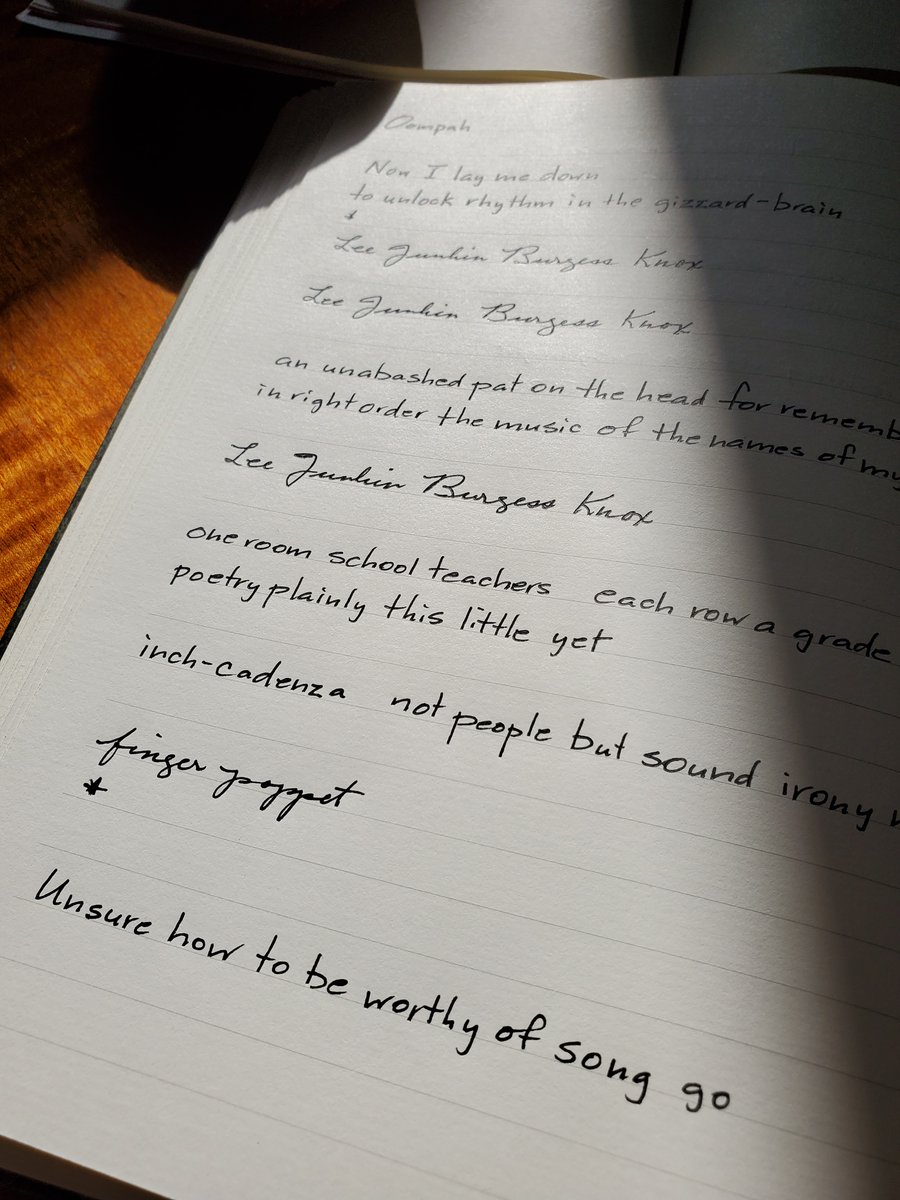 Oompah
Now I lay me down
to unlock rhythm in the gizzard-brain
*
Lee Junkin Burgess Knox
Lee Junkin Burgess Knox
an unabashed pat on the head for rememb
in right order the music of the names of my
Lee Junkin Burgess Knox
one room school teachers each row a grade
poetry plainly this little yet
inch-cadenza not people but sound irony
finger poppet
*
Unsure how to be worthy of song go